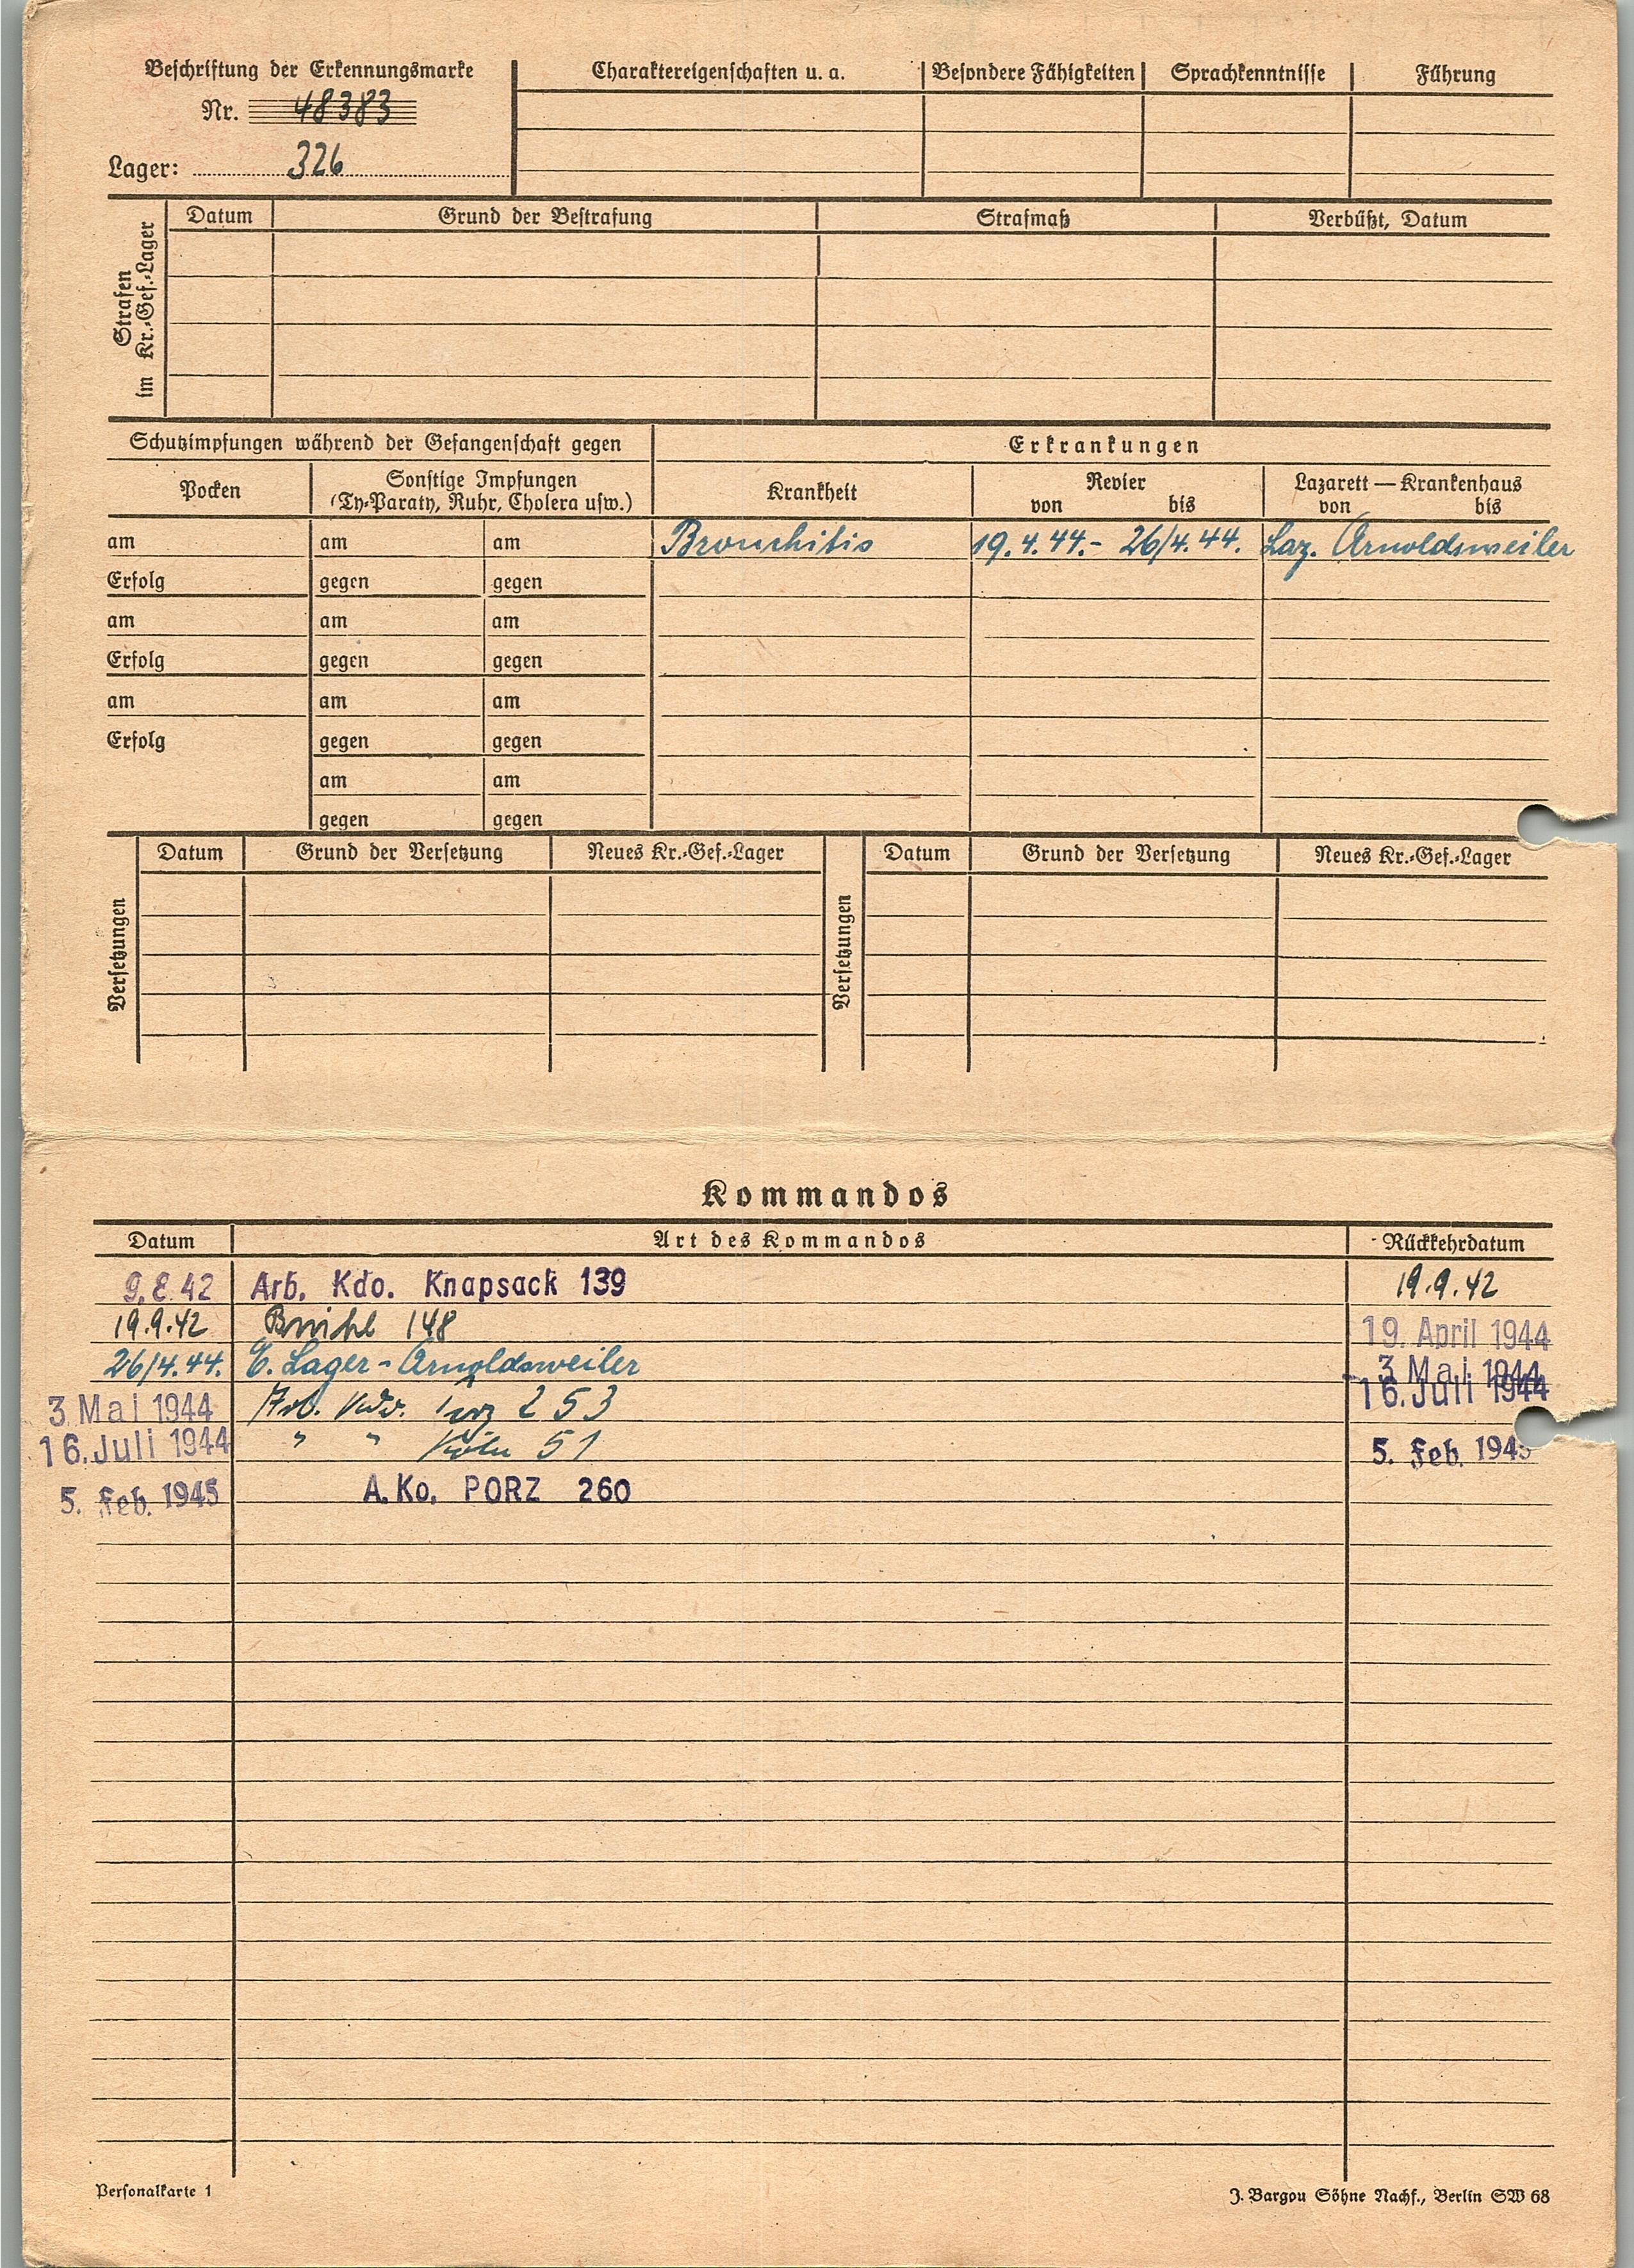 Beschriftung der Erkennungsmarke
Nr. 48383
Lager: 326
Charaktereigenschaften u. a. Besondere Fähigkeiten Sprachkenntnisse Führung
Strafen
im Kr.-Gef.-Lager
Datum Grund der Bestrafung Strafmaß Verbüßt, Datum
Schutzimpfungen während der Gefangenschaft gegen Erkrankungen
Pocken Sonstige Impfungen Krankheit Revier Lazarett — Krankenhaus
(Ty-Paraty, Ruhr, Cholera usw.) von bis von bis
am am am Bronchitis 19.4.44.- 26/4.44. Laz. Arnoldsweiler
Erfolg gegen gegen
am am am
Erfolg gegen gegen
am am am
Erfolg gegen gegen
am am
gegen gegen
Versetzungen
Datum Grund der Versetzung Neues Kr.-Gef.-Lager
Versetzungen
Datum Grund der Versetzung Neues Kr.-Gef.-Lager
Kommandos
Datum Art des Kommandos Rückkehrdatum
9.8.42 Arb. Kdo. Knapsack 139 19.9.42
19.9.42 148 19. April 1944
26/4.44. E. Lager - Arnoldsweiler 3. Mai 1944
3. Mai 1944 Arb. Kdo. 253 16. Juli 1944
16. Juli 1944 " " Köln 51 5. Feb. 1945
5. Feb. 1945 A. Ko. PORZ 260
Personalkarte 1
J. Bargou Söhne Nachf., Berlin SW 68